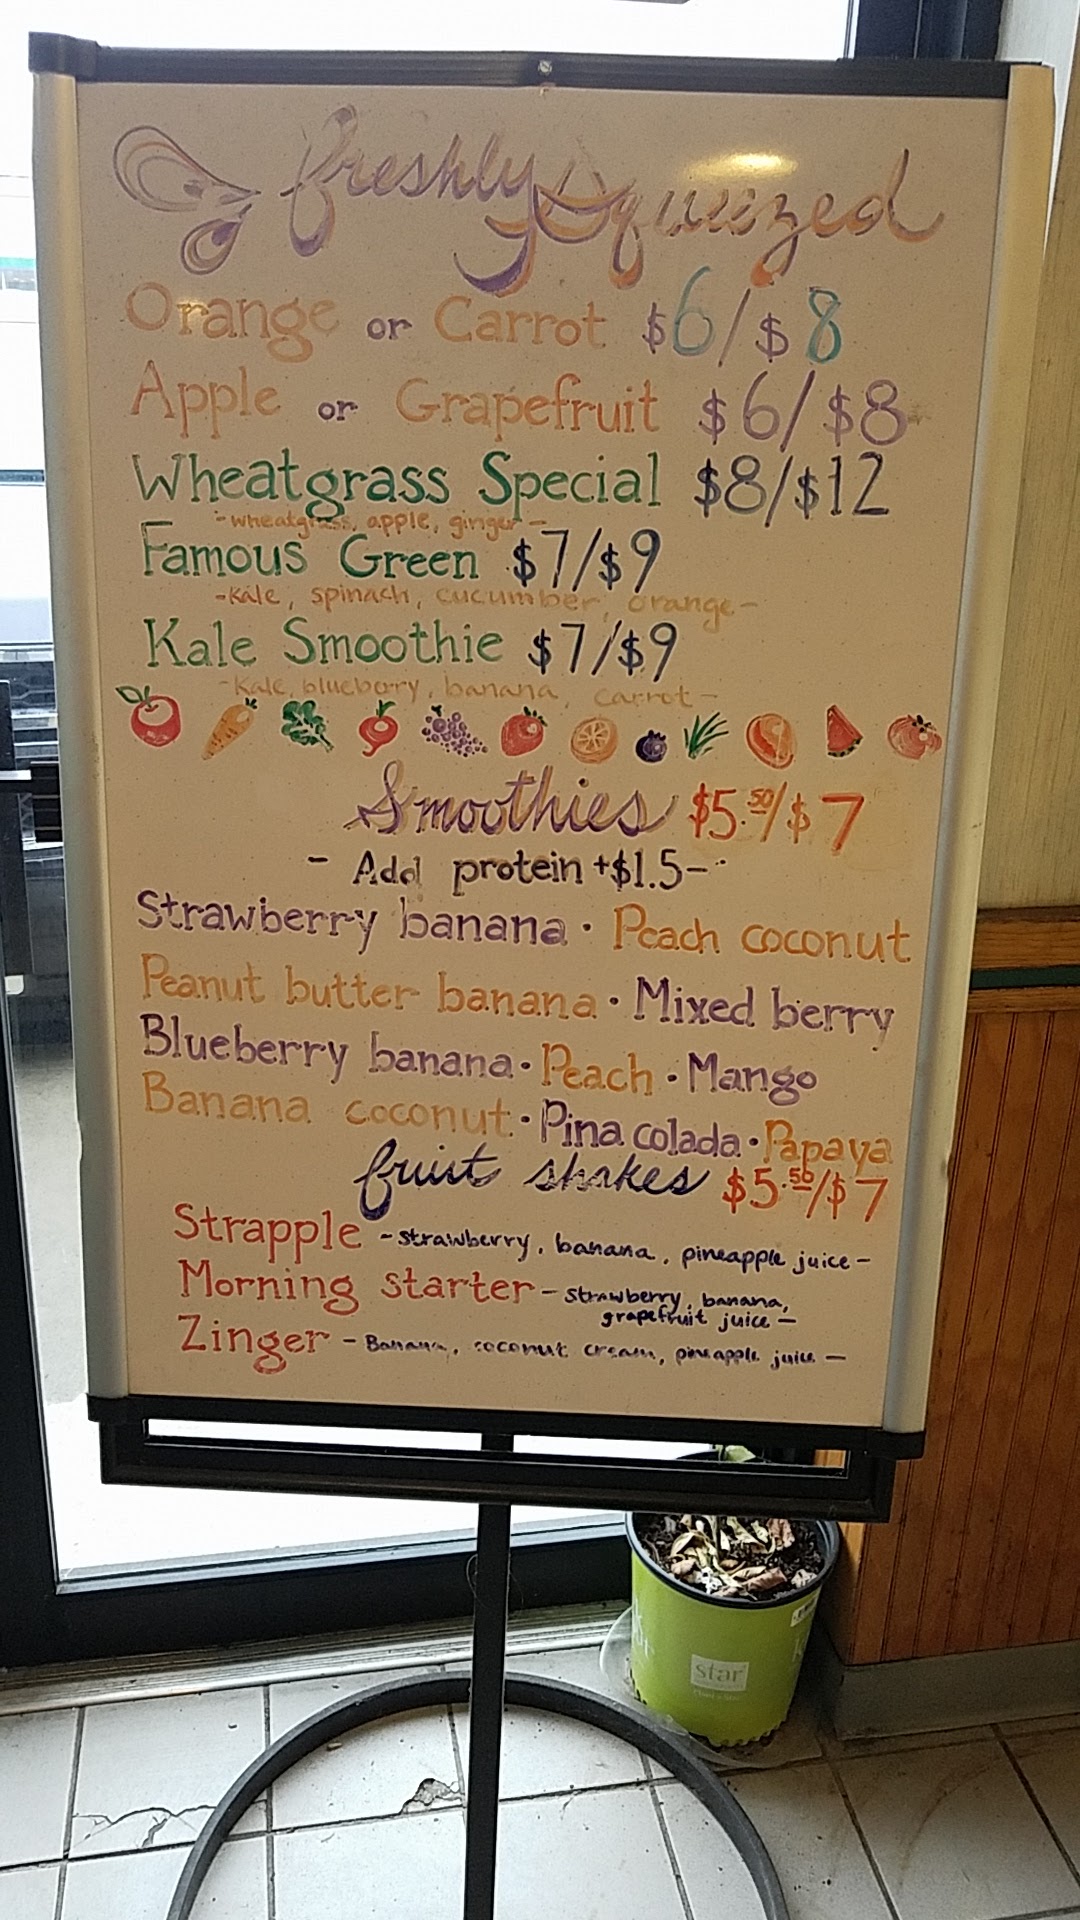 freshly Squeezed
Orange or Carrot $6/$8
Apple or Grapefruit $6/$8
Wheatgrass Special $8/$12
-wheatgrass, apple, ginger-
Famous Green $7/$9
-Kale, spinach, cucumber, orange-
Kale Smoothie $7/$9
-Kale, blueberry, banana, carrot-
Smoothies $5.50/$7
- Add protein +$1.5-
Strawberry banana · Peach coconut
Peanut butter banana · Mixed berry
Blueberry banana · Peach · Mango
Banana coconut · Pina colada · Papaya
fruit shakes $5.50/$7
Strapple -strawberry, banana, pineapple juice-
Morning starter - strawberry, banana,
grapefruit juice -
Zinger - Banana, coconut cream, pineapple juice -
star